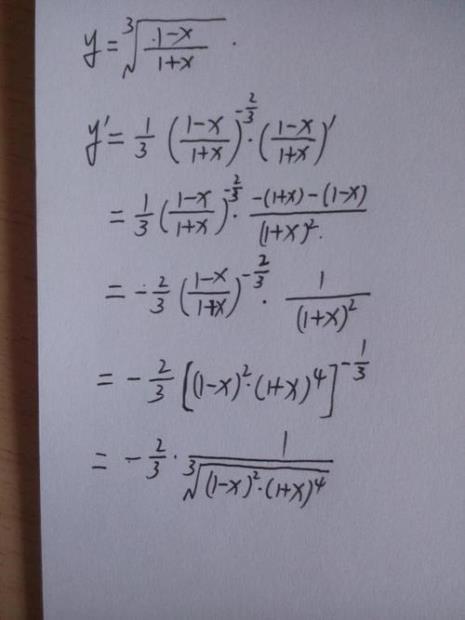 y = ∛((1-x)/(1+x)).
y' = 1/3 ((1-x)/(1+x))^(-2/3) · ((1-x)/(1+x))'
= 1/3 ((1-x)/(1+x))^(-2/3) · (-(1+x)-(1-x))/(1+x)².
= -2/3 ((1-x)/(1+x))^(-2/3) · 1/(1+x)²
= -2/3 [(1-x)²·(1+x)⁴]^(-1/3)
= -2/3 · 1/∛((1-x)²·(1+x)⁴)